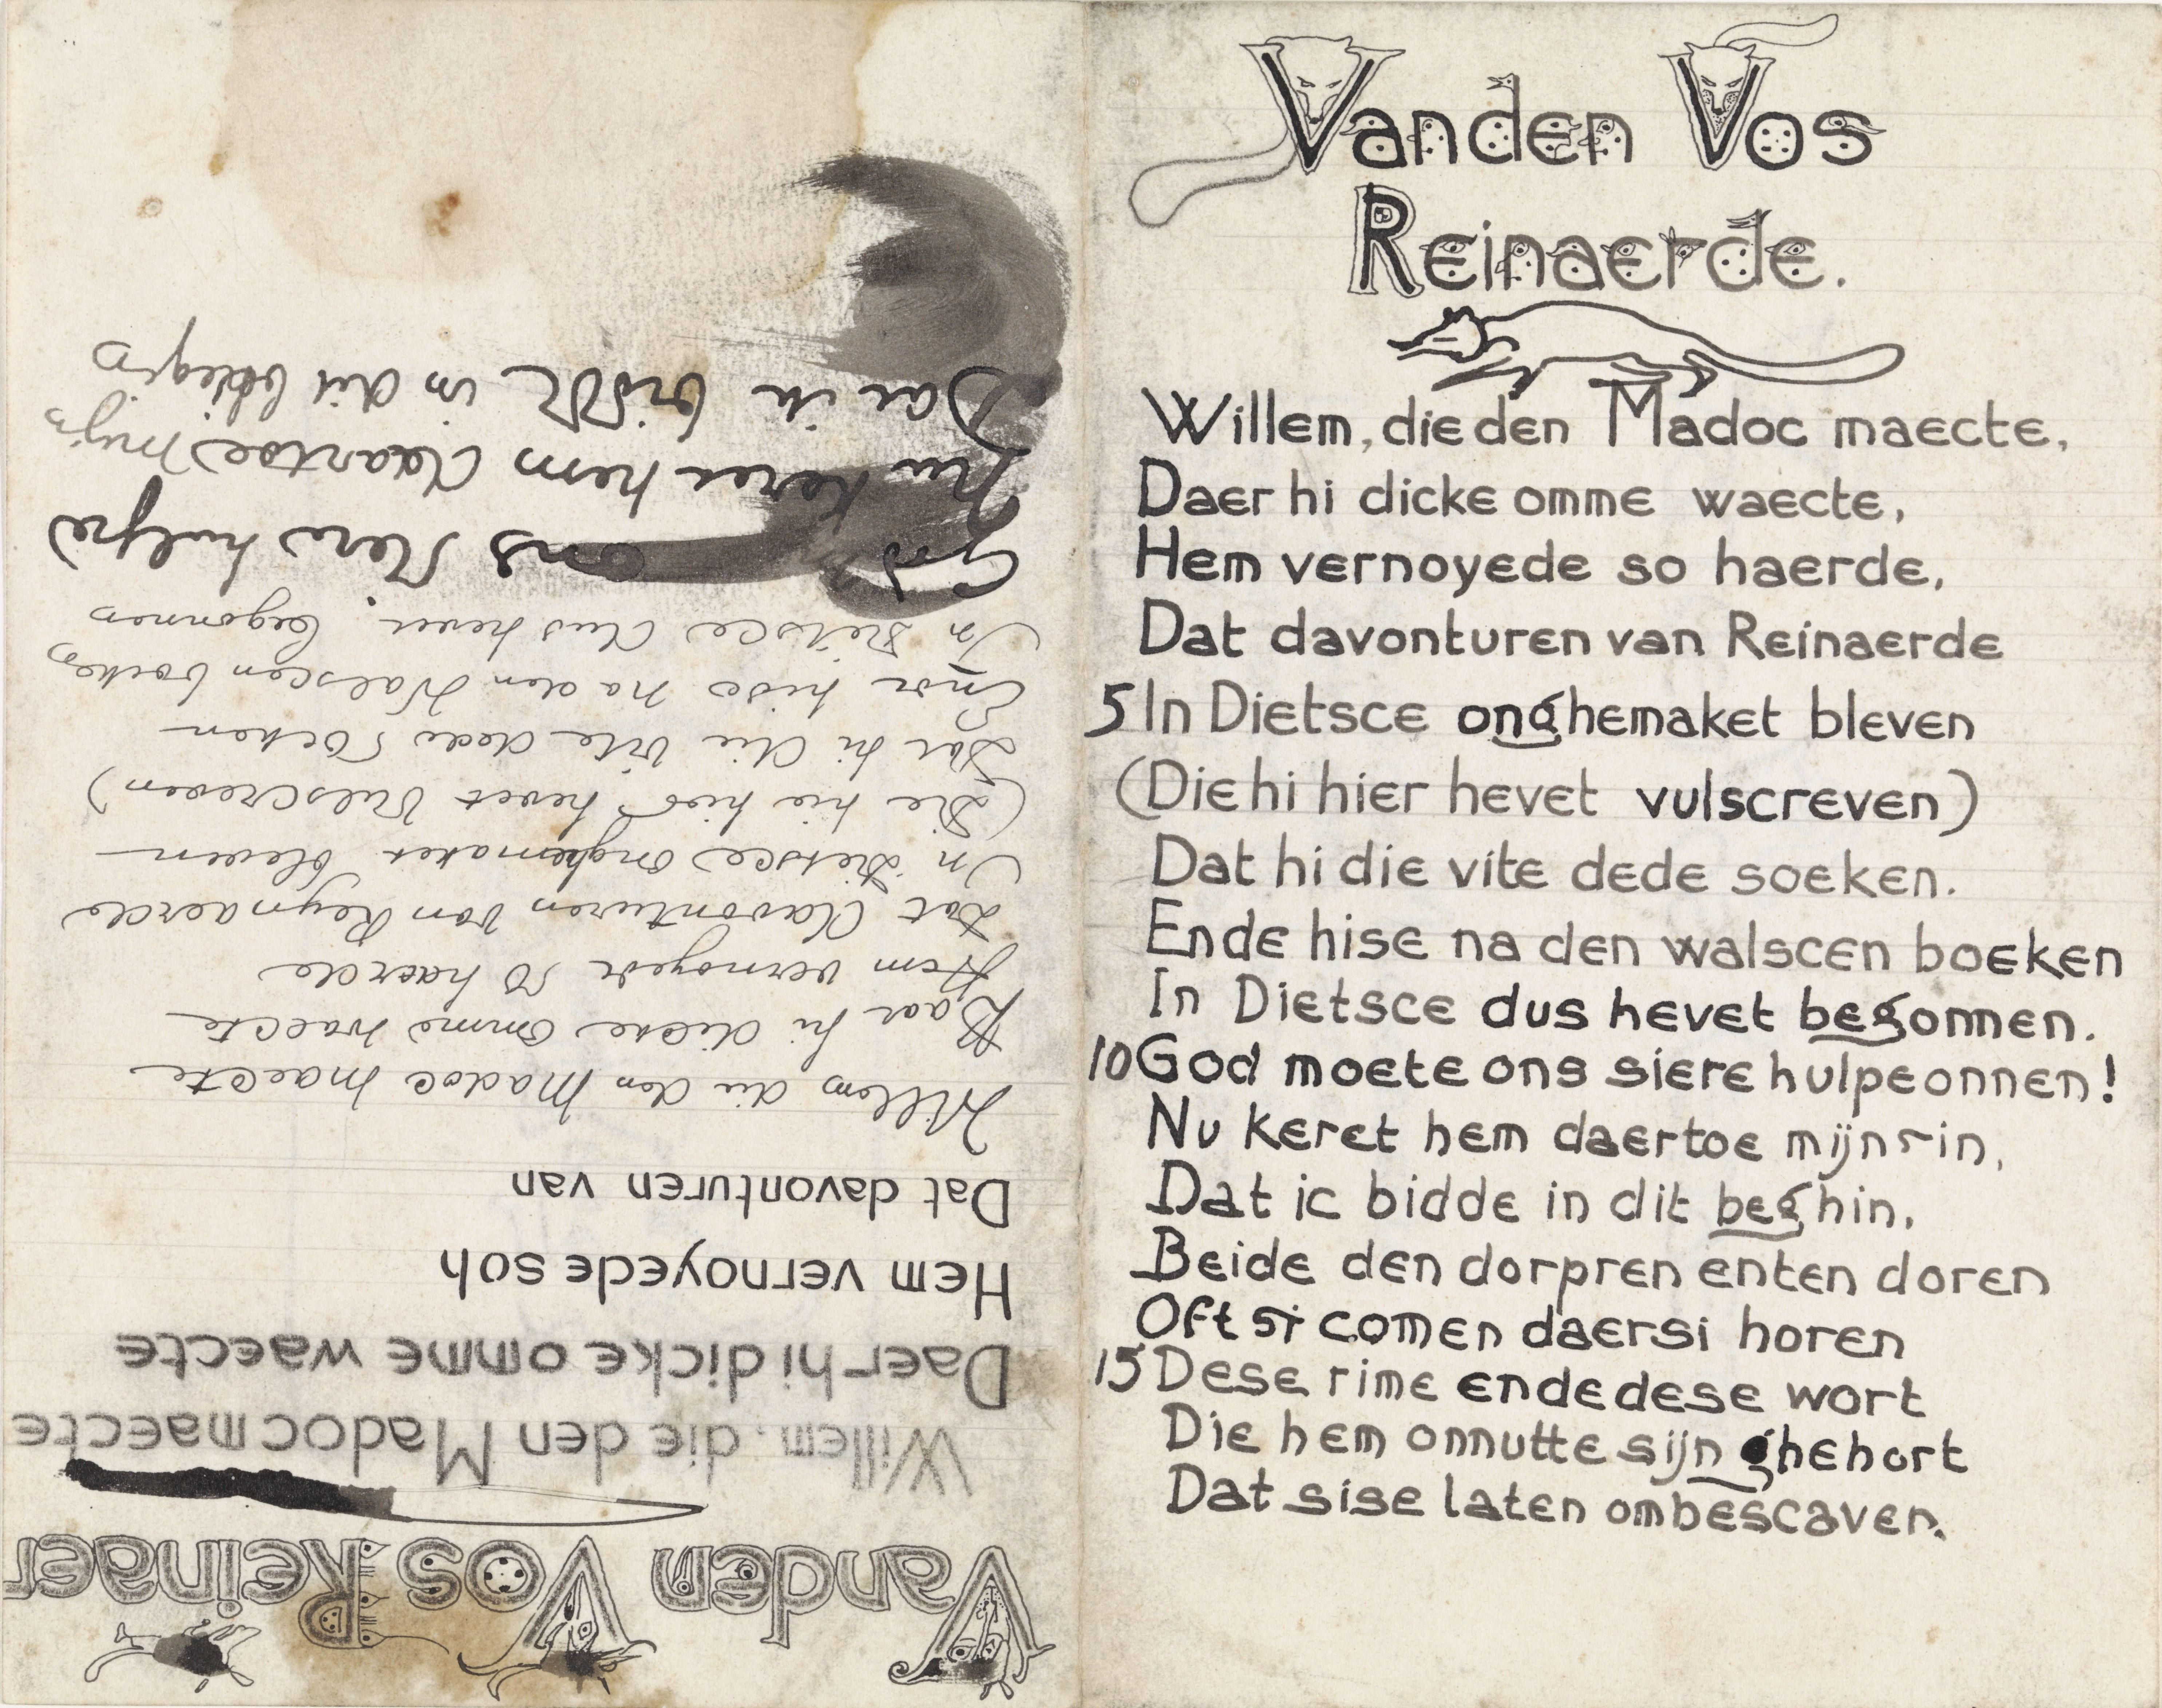 Vanden Vos
Reinaerde.
Willem, die den Madoc maecte,
Daer hi dicke omme waecte,
Hem vernoyede so haerde,
Dat davonturen van Reinaerde
5 In Dietsce onghemaket bleven
(Die hi hier hevet vulscreven)
Dat hi die vite dede soeken.
Ende hise na den walscen boeken
In Dietsce dus hevet begonnen.
10 God moete ons siere hulpe onnen!
Nu keret hem daertoe mijn sin,
Dat ic bidde in dit beghin,
Beide den dorpren enten doren
Oft si comen daer si horen
15 Dese rime ende dese wort
Die hem onnutte sijn ghehort
Dat sise laten onbescaven.
Vanden Vos Reinaer
Willem, die den Madoc maecte
Daer hi dicke omme waecte
Hem vernoyede soh
Dat davonturen van
Willem die den Madoc maecte
Daar hi dicke omme waecte
Hem vernoyede so haerde
Dat davonturen van Reynaerde
In Dietsce onghemaket bleven
(Die hie hier hevet vulscreven)
Dat hi die vite dede soeken
Ende hise na den Walscen boeken
In Dietsce dus hevet begonnen
God ons siere hulpe
Nu keret hem daartoe mijn
Dat ic bidde in dit